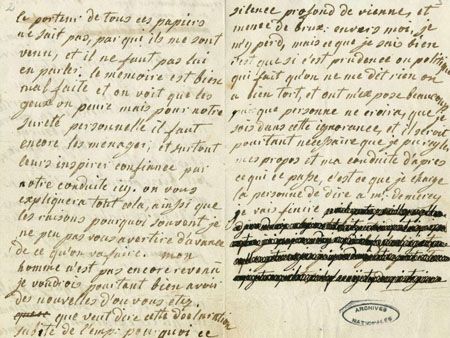 2
le porteur de tous ces papiers
ne sait pas, par qui ils me sont
venu, et il ne faut pas lui
en parler. le mémoire est bien
mal faite et on voit que les
geux on peure mais pour notre
sureté personnelle il faut
encore les menager, et surtout
leurs inspirer confiance par
notre conduite icy. on vous
expliquera tout cela, ainsi que
les raisons pourquoi souvent je
ne peu pas vous avertire d'avance
de ce qu'on va faire. mon
homme n'est pas encore revenu
je voudrois pourtant bien avoir
des nouvelles d'ou vous etes.
que veut dire cette déclaration
subite de l'emp: pourquoi ce
silence profond de vienne, et
meme de brux: envers moi. je
m'y perd, mais ce que je sais bien
c'est que si c'est prudence ou politique
qui fait qu'on ne me dit rien on
a bien tort, et ont m'expose beaucoup
puisque personne ne croira, que je
sois dans cette ignorance, et il seroit
pourtant nécessaire que je puisse régler
mes propos et ma conduite d'après
ce qui ce passe, c'est ce que je charge
la personne de dire a mr. de mercy
je vais finire
ARCHIVES
NATIONALES